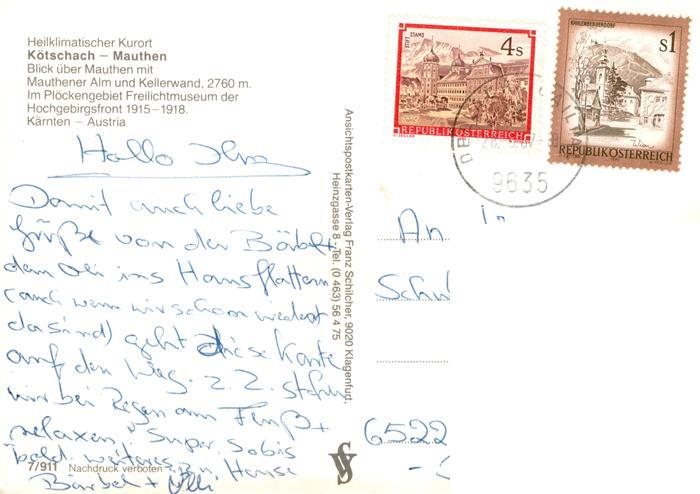 Heilklimatischer Kurort
Kötschach – Mauthen
Blick über Mauthen mit
Mauthener Alm und Kellerwand, 2760 m.
Im Plöckengebiet Freilichtmuseum der
Hochgebirgsfront 1915–1918.
Kärnten – Austria
Hallo Ihr
Damit auch liebe
Grüße von der Bärbel +
dem Uli ins Haus flattern
(auch wenn wir schon wieder
da sind) geht diese Karte
auf den Weg. z. Z.
wir bei Regen am +
relaxen. Super. bis
bald. weiteres zu Hause
Bärbel + Ulli
7/911 Nachdruck verboten
Ansichtspostkarten-Verlag Franz Schilcher, 9020 Klagenfurt,
Heinzgasse 8 - Tel. (0 463) 56 4 75
STIFT STAMS
4s
REPUBLIK ÖSTERREICH
KAHLENBERGERDORF
s1
REPUBLIK ÖSTERREICH
9635
An
in
Sch
6522